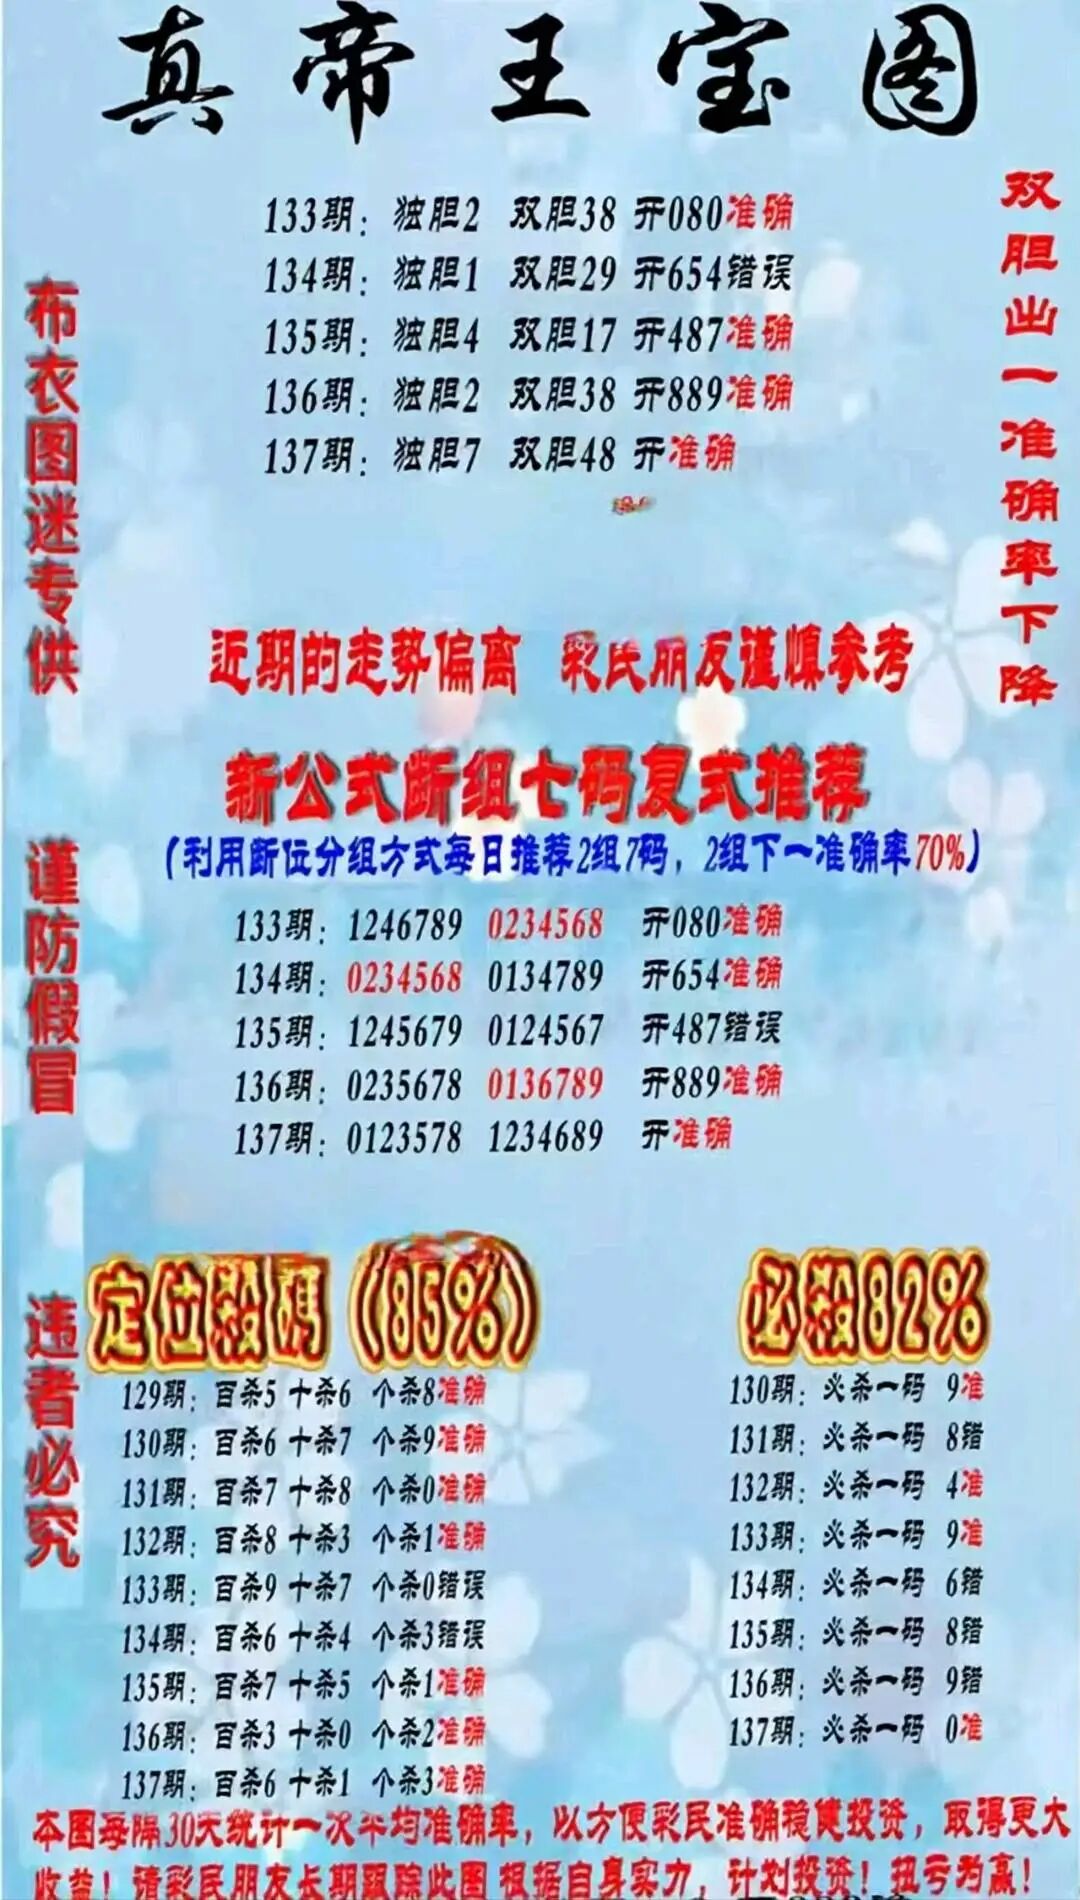 真帝王宝图
133期：独胆2 双胆38 开080准确
134期：独胆1 双胆29 开654错误
135期：独胆4 双胆17 开487准确
136期：独胆2 双胆38 开889准确
137期：独胆7 双胆48 开准确
双胆出一准确率下降
布衣图迷专供
谨防假冒
违者必究
近期的走势偏离 彩民朋友谨慎参考
新公式断组七码复式推荐
（利用断位分组方式每日推荐2组7码，2组下一准确率70%）
133期：1246789 0234568 开080准确
134期：0234568 0134789 开654准确
135期：1245679 0124567 开487错误
136期：0235678 0136789 开889准确
137期：0123578 1234689 开准确
定位殺碼（85%）
129期：百杀5 十杀6 个杀8准确
130期：百杀6 十杀7 个杀9准确
131期：百杀7 十杀8 个杀0准确
132期：百杀8 十杀3 个杀1准确
133期：百杀9 十杀7 个杀0错误
134期：百杀6 十杀4 个杀3错误
135期：百杀7 十杀5 个杀1准确
136期：百杀3 十杀0 个杀2准确
137期：百杀6 十杀1 个杀3准确
必殺82%
130期：必杀一码 9准
131期：必杀一码 8错
132期：必杀一码 4准
133期：必杀一码 9准
134期：必杀一码 6错
135期：必杀一码 8错
136期：必杀一码 9错
137期：必杀一码 0准
本图每隔30天统计一次平均准确率，以方便彩民准确稳健投资，取得更大
收益！请彩民朋友长期跟踪此图 根据自身实力，计划投资！扭亏为赢！